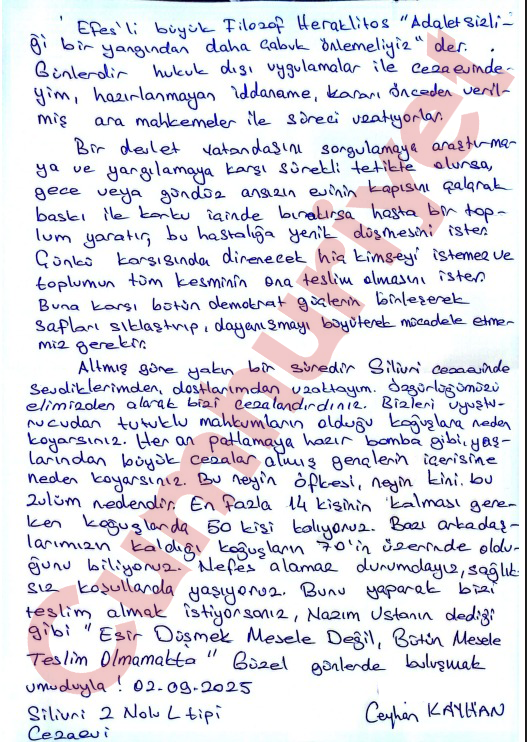 Efes'li büyük Filozof Heraklitos "Adaletsizli-
ği bir yangından daha çabuk önlemeliyiz" der.
Günlerdir hukuk dışı uygulamalar ile cezaevinde-
yim, hazırlanmayan iddaname, kararı önceden veril-
miş ara mahkemeler ile süreci uzatıyorlar.
Bir devlet vatandaşını sorgulamaya araştırma-
ya ve yargılamaya karşı sürekli tetikte olursa
gece veya gündüz ansızın evinin kapısını çalarak
baskı ile korku içinde bırakırsa hasta bir top-
lum yaratır, bu hastalığa yenik düşmesini ister.
Çünkü karşısında direnecek hiç kimseyi istemez ve
toplumun tüm kesminin ona teslim olmasını ister.
Buna karşı bütün demokrat güçlerin birleşerek
safları sıklaştırıp, dayanışmayı büyüterek mücadele etme-
miz gerekir.
Altmış güne yakın bir süredir Silivri cezaevinde
sevdiklerimden, dostlarımdan uzaktayım. Özgürlüğümüzü
elimizden alarak bizi cezalandırdınız. Bizleri uyuştu-
rucudan tutuklu mahkumların olduğu koğuşlara neden
koyarsınız. Her an patlamaya hazır bomba gibi, yaş-
larından büyük cezalar almış gençlerin içerisine
neden koyarsınız. Bu neyin öfkesi, neyin kini, bu
zulüm nedendir. En fazla 14 kişinin kalması gere-
ken koğuşlarda 50 kişi kalıyoruz. Bazı arkadaş-
larımızın kaldığı koğuşların 70'in üzerinde oldu-
ğunu biliyoruz. Nefes alamaz durumdayız, sağlık-
sız koşullarda yaşıyoruz. Bunu yaparak bizi
teslim almak istiyorsanız, Nazım Ustanın dediği
gibi "Esir Düşmek Mesele Değil, Bütün Mesele
Teslim Olmamakta" Güzel günlerde buluşmak
umuduyla! 02-09-2025
Silivri 2 Nolu L tipi Ceyhan KAYHAN
Cezaevi
Cumhuriyet